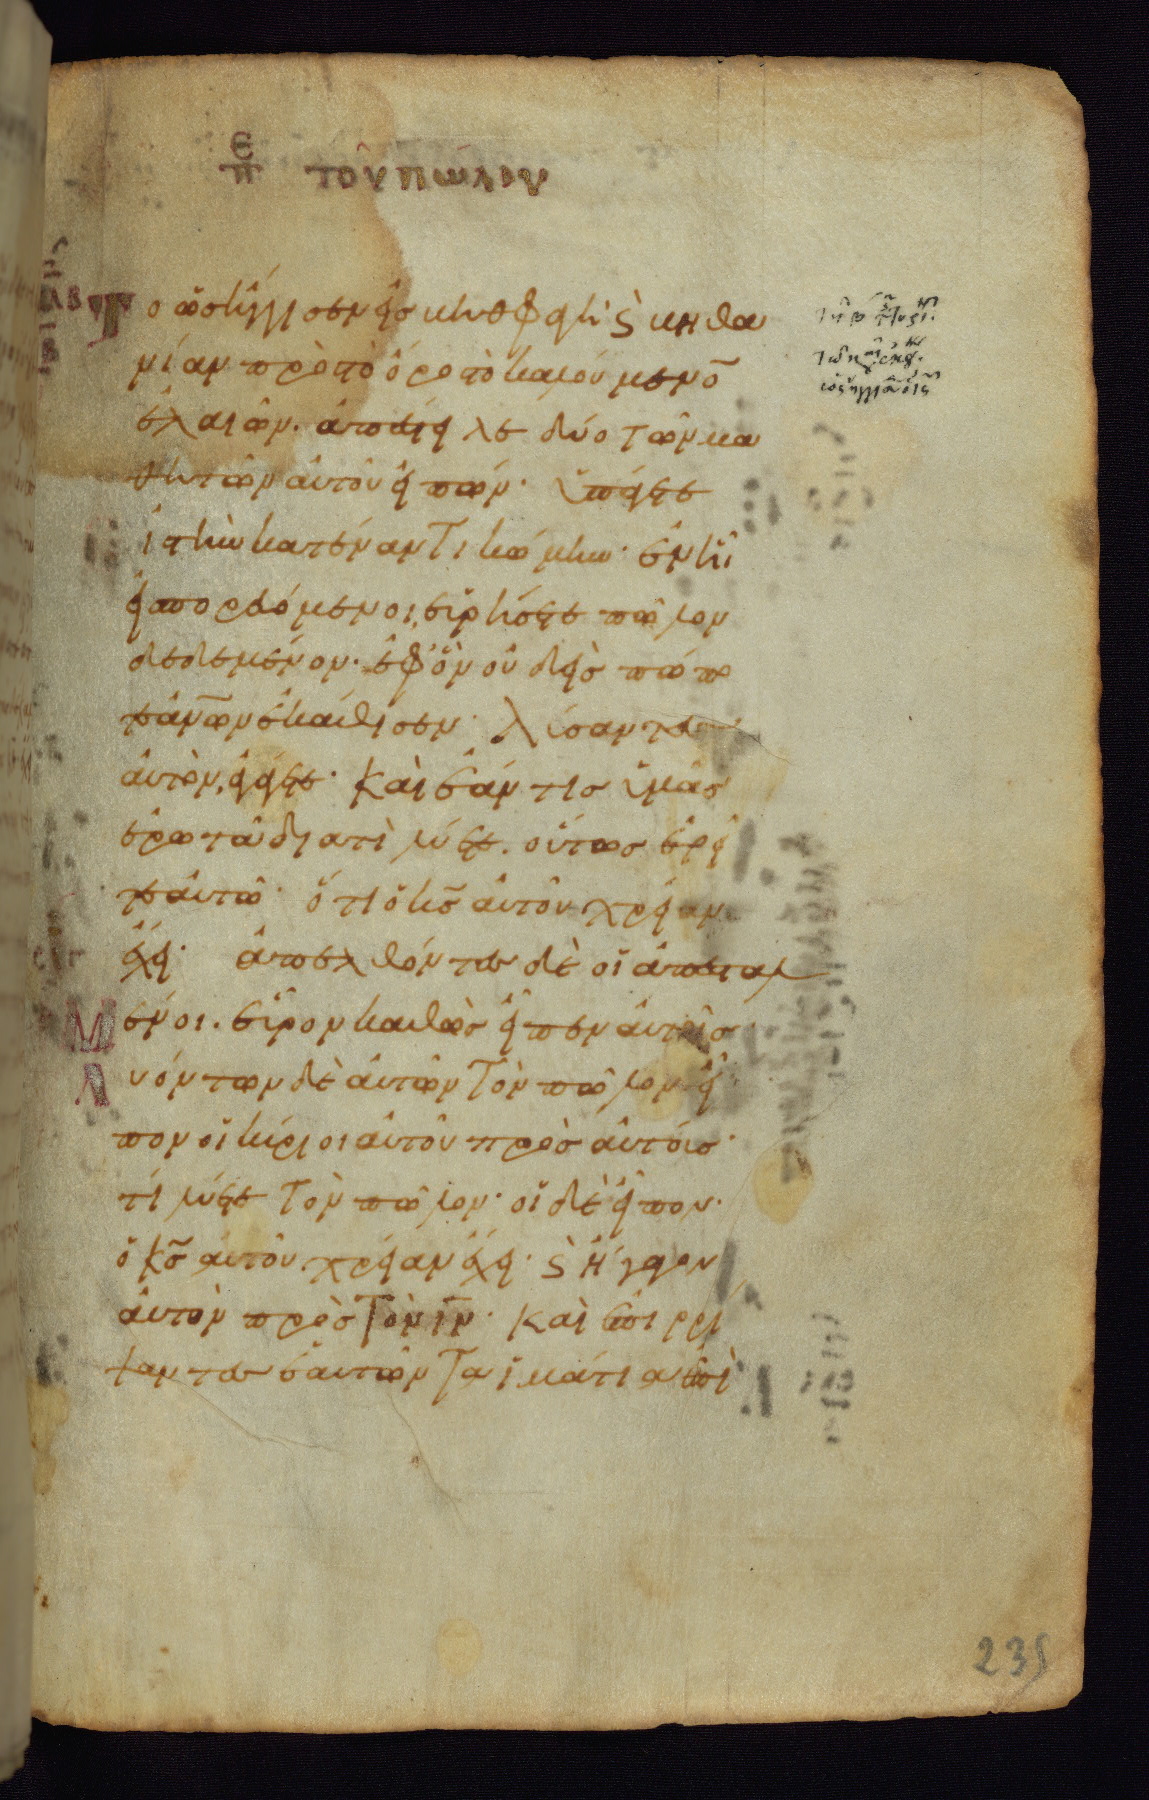 ϵπ τοῦ πώλου
ο ὡσήγγισεν εἰσ βηθσφαγὴ ϛ βηθα
νίαν πρὸσ τὸ ὄροσ τὸ καλούμενο̅
ἐλαιῶν. ἀπέστειλε δύο τῶν μα
θητῶν αὐτοῦ εἰπών· ὑπάγετε
εἰσ τὴν κατέναντι κώμην· ἐν ἧ
εἰσπορευόμενοι, εὑρήσετε πῶλον
δεδεμένον· ἐφ' ὃν οὐδεὶσ πώπο
τε ἀν̅ων ἐκάθισεν· λύσαντεσ
αὐτὸν, ἀγάγετε· καὶ ἐάν τισ ὑμᾶσ
ἐρωτᾶ διατί λύετε. οὕτωσ ἐρεῖ
τε αὐτῶ· ὅτι ὁ κ̅σ αὐτοῦ χρείαν
ἔχει· ἀπελθόντεσ δὲ οἱ ἀπεσταλ
μένοι. εὗρον καθὼσ εἶπεν αὐτοῖσ
Λυόντων δὲ αὐτῶν τὸν πῶλον· εἶ
πον οἱ κύριοι αὐτοῦ πρὸσ αὐτούσ·
τί λύετε τὸν πῶλον· οἱ δὲ εἶπον·
ὁ κ̅σ αὐτοῦ χρείαν ἔχει· ϛ ἤγαγον
αὐτὸν πρὸσ τὸν ι̅ν· καὶ ἐπιρρί
ψαντεσ ἑαυτῶν τὰ ἱμάτια ἐπὶ
235